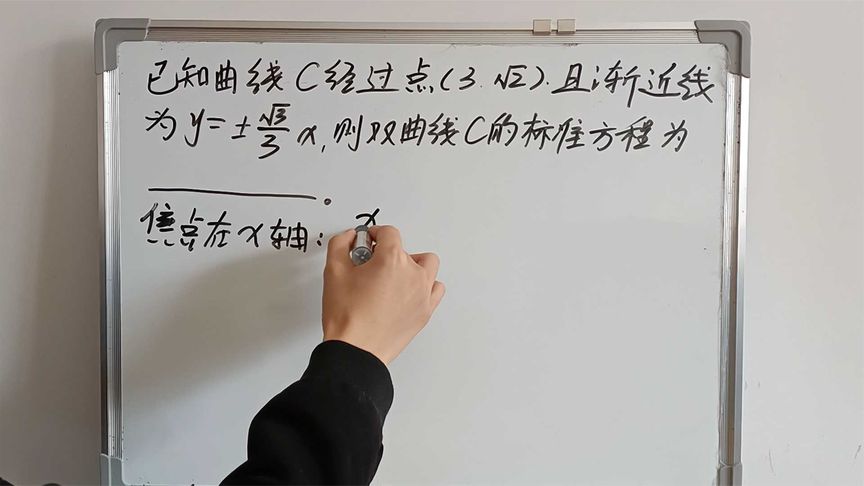 已知曲线C经过点(3.√2).且渐近线
为y=±√3/3 x,则双曲线C的标准方程为
______。
焦点在x轴: x